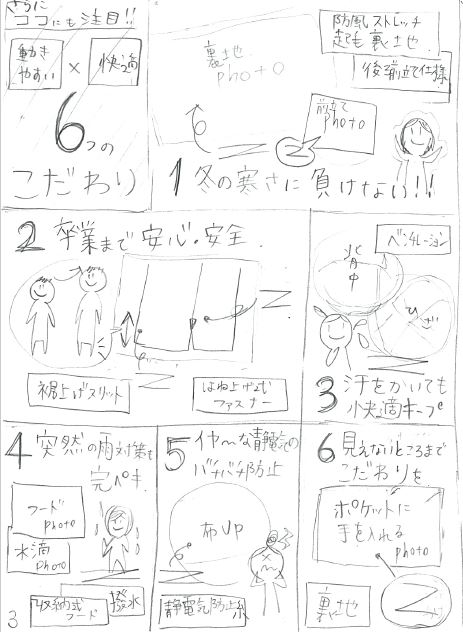 さらに
ココにも注目!!
動き
やすい
×
快適
6つの
こだわり
裏地
photo
防風ストレッチ
起毛裏地
後前立て仕様
前立て
photo
1 冬の寒さに負けない!!
2 卒業まで安心・安全
裾上げスリット
はね上げ式
ファスナー
ベンチレーション
背中
ひざ
3 汗をかいても
快適キープ
4 突然の雨対策も
完ペキ
フード
photo
水滴
photo
収納式
フード
撥水
5 イヤ〜な静電気の
バチバチ防止
布UP
静電気防止糸
6 見えないところまで
こだわりを
ポケットに
手を入れる
photo
裏地
3